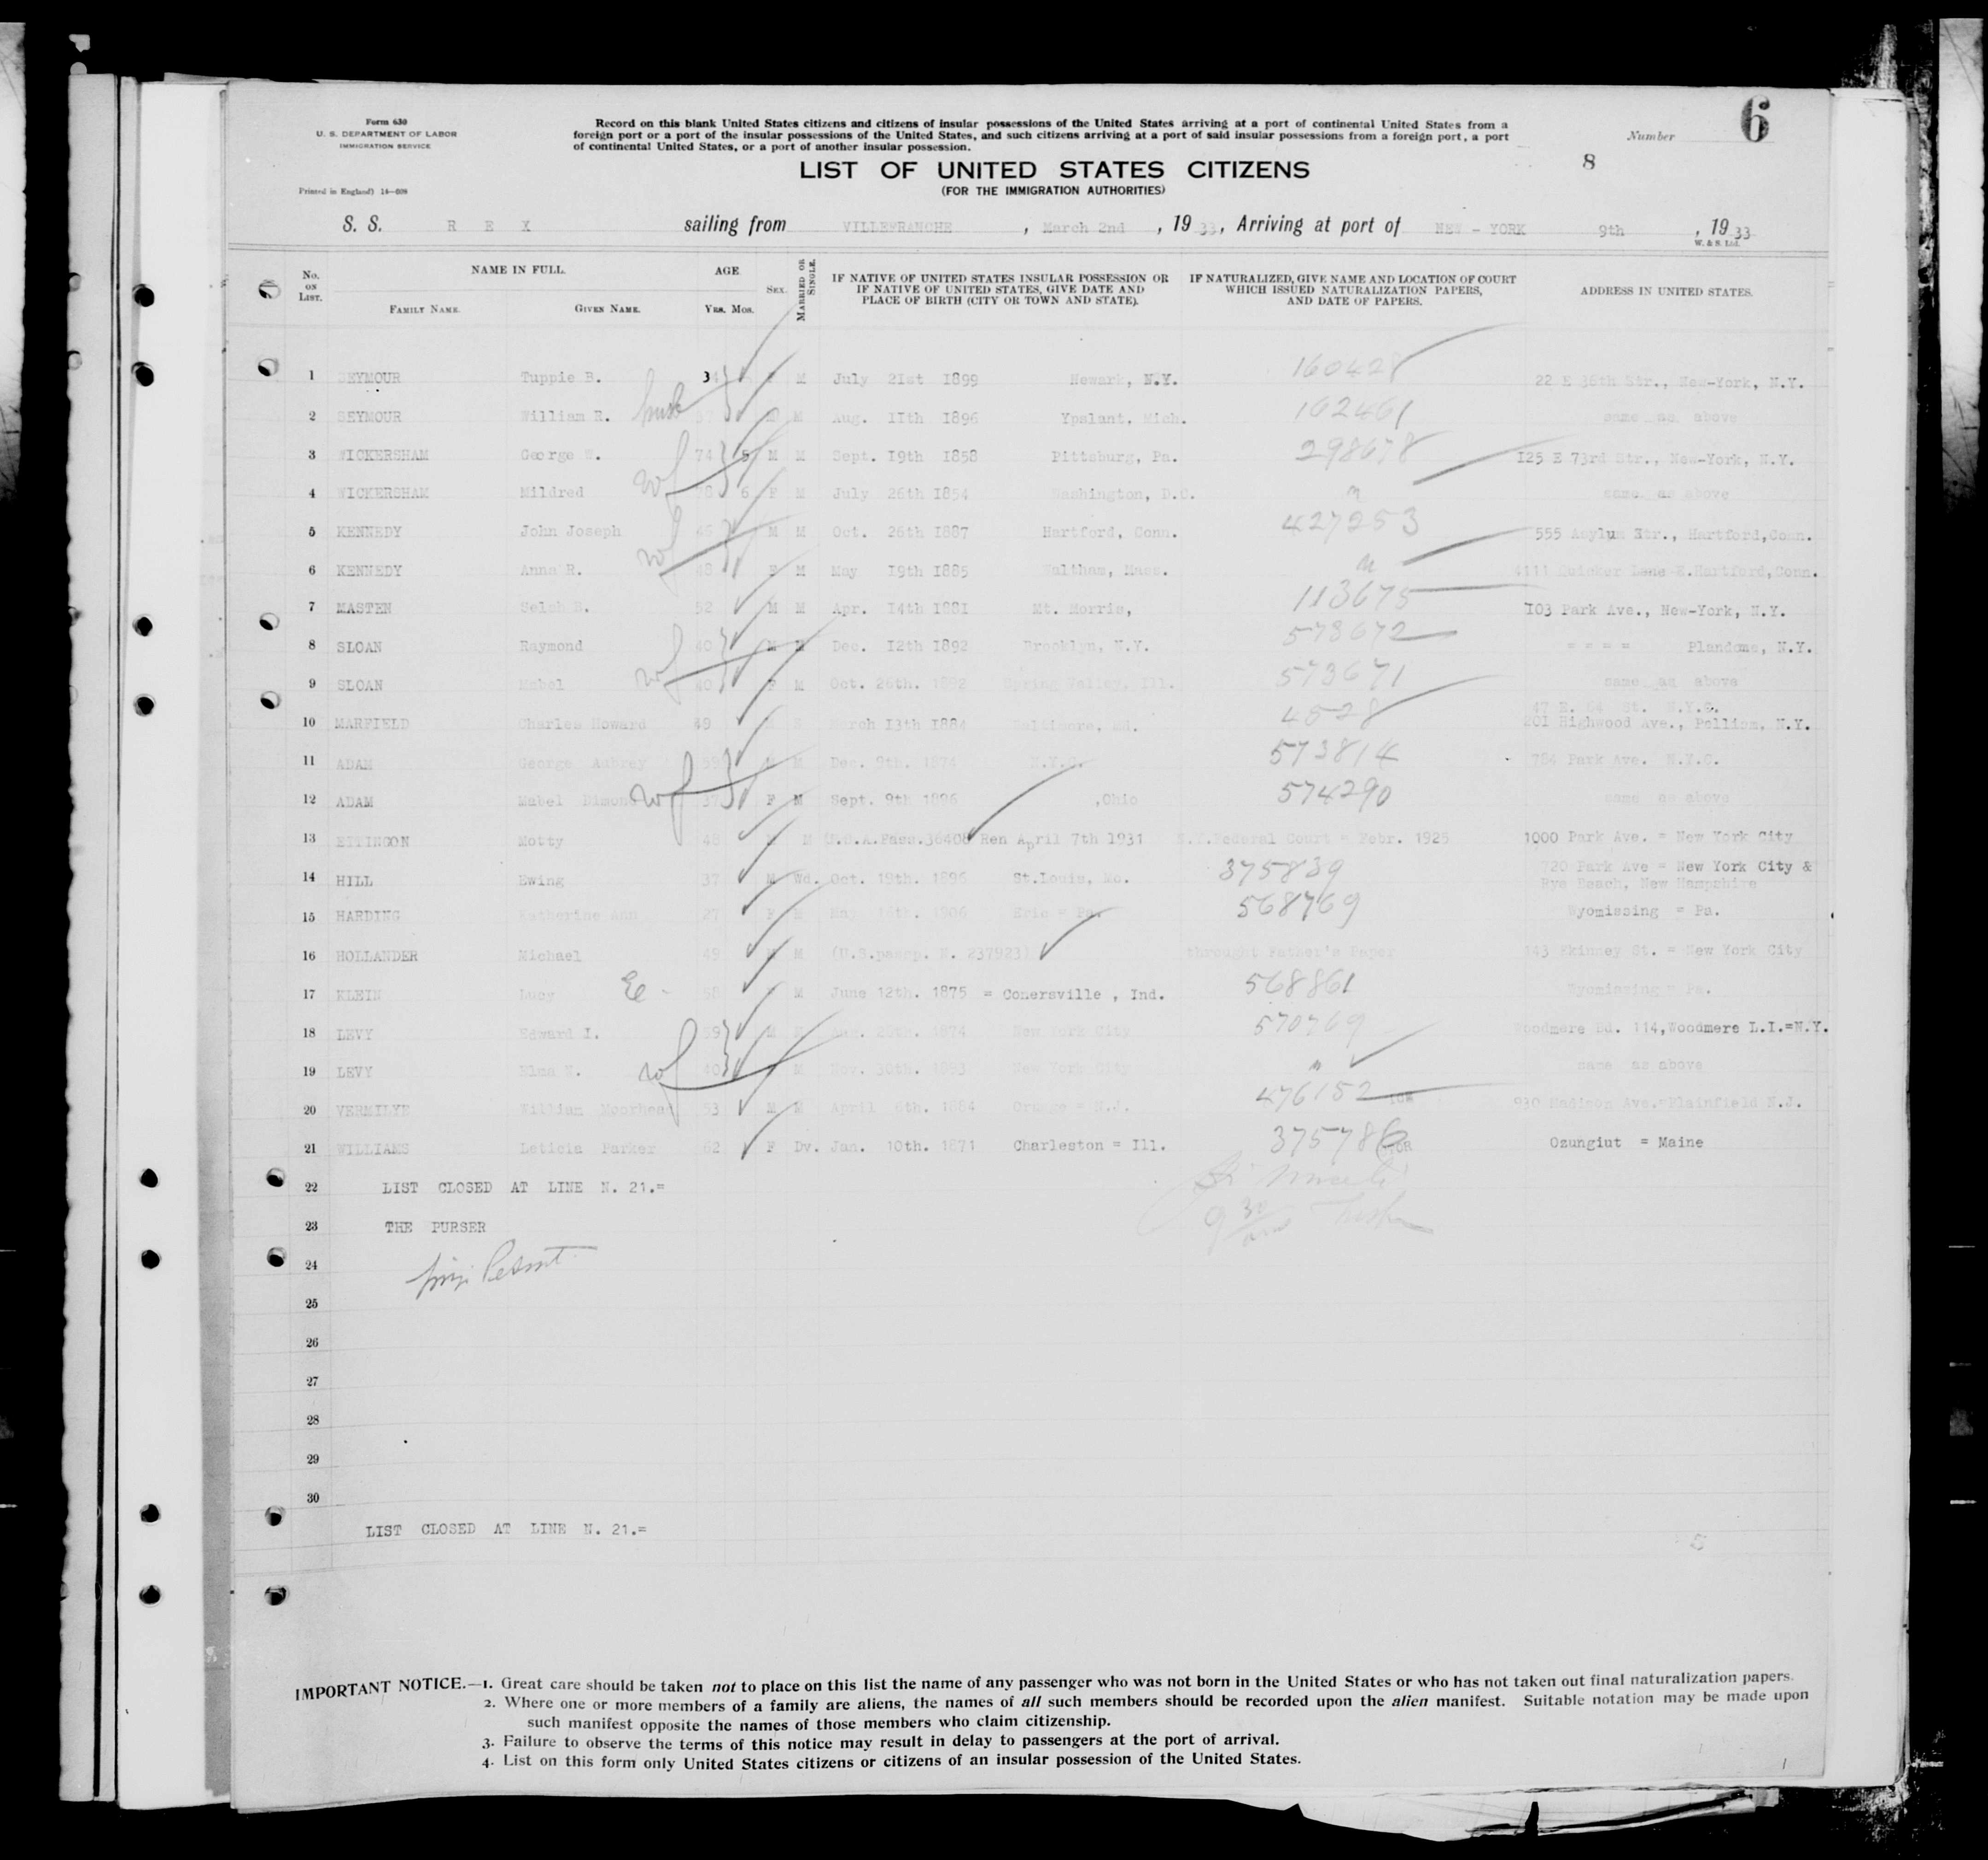 Form 630
U. S. DEPARTMENT OF LABOR
IMMIGRATION SERVICE
Printed in England) 14—608
Record on this blank United States citizens and citizens of insular possessions of the United States arriving at a port of continental United States from a
foreign port or a port of the insular possessions of the United States, and such citizens arriving at a port of said insular possessions from a foreign port, a port
of continental United States, or a port of another insular possession.
Number 6
8
LIST OF UNITED STATES CITIZENS
(FOR THE IMMIGRATION AUTHORITIES)
S. S. R E X sailing from VILLEFRANCHE , March 2nd , 19 33, Arriving at port of NEW - YORK 9th , 19 33
W. & S. Ltd.
No. ON LIST. NAME IN FULL. FAMILY NAME. GIVEN NAME. AGE YRS. MOS. SEX. MARRIED OR SINGLE. IF NATIVE OF UNITED STATES INSULAR POSSESSION OR IF NATIVE OF UNITED STATES, GIVE DATE AND PLACE OF BIRTH (CITY OR TOWN AND STATE). IF NATURALIZED, GIVE NAME AND LOCATION OF COURT WHICH ISSUED NATURALIZATION PAPERS, AND DATE OF PAPERS. ADDRESS IN UNITED STATES.
1 SEYMOUR Tuppie B. 34 F M July 21st 1899 Newark, N.Y. 160428 22 E 36th Str., New-York, N.Y.
2 SEYMOUR William R. husb 37 M M Aug. 11th 1896 Ypslant, Mich. 162461 same as above
3 WICKERSHAM George W. 74 5 M M Sept. 19th 1858 Pittsburg, Pa. 298678 125 E 73rd Str., New-York, N.Y.
4 WICKERSHAM Mildred wf 78 6 F M July 26th 1854 Washington, D.C. " same as above
5 KENNEDY John Joseph 45 M M Oct. 26th 1887 Hartford, Conn. 427253 555 Asylum Str., Hartford,Conn.
6 KENNEDY Anna R. wf 48 F M May 19th 1885 Waltham, Mass. " Lane E.Hartford,Conn.
7 MASTEN Selah B. 52 M M Apr. 14th 1881 Mt. Morris, 113675 103 Park Ave., New-York, N.Y.
8 SLOAN Raymond 40 M M Dec. 12th 1892 Brooklyn, N.Y. 573672 = = = = Plandome, N.Y.
9 SLOAN Mabel wf 40 F M Oct. 26th. 1892 Spring Valley, Ill. 573671 same as above
10 MARFIELD Charles Howard 49 M S March 13th 1884 Baltimore, Md. 4528 47 E. 64 St. N.Y.C.
201 Highwood Ave., Pelliam, N.Y.
11 ADAM George Aubrey 59 M M Dec. 9th. 1874 N.Y.C. 573814 784 Park Ave. N.Y.C.
12 ADAM Mabel Dimond wf 37 F M Sept. 9th 1896 ,Ohio 574290 same as above
13 ETTINGON Motty 48 M M U.S.A.Pass.36408 Ren April 7th 1931 S.Y.Federal Court = Febr. 1925 1000 Park Ave. = New York City
14 HILL Ewing 37 M Wd. Oct. 19th. 1896 St.Louis, Mo. 375839 720 Park Ave = New York City &
Rye Beach, New Hampshire
15 HARDING Katherine Ann 27 F May 16th. 1906 Erie = Pa. 568769 Wyomissing = Pa.
16 HOLLANDER Michael 49 M M (U.S.passp. N. 237923) throught Father's Paper 143 Skinney St. = New York City
17 KLEIN Lucy 58 M June 12th. 1875 = Conersville , Ind. 568861 Wyomissing = Pa.
18 LEVY Edward I. 59 M M Aug. 1874 New York City 570769 Woodmere Bd. 114,Woodmere L.I.=N.Y.
19 LEVY Elsa wf 40 M Nov. 30th. 1893 New York City " same as above
20 VERMILYE William Moorhead 53 M M April 6th. 1884 Orange = N.J. 476152 930 Madison Ave.=Plainfield N.J.
21 WILLIAMS Leticia Parker 62 F Dv. Jan. 10th. 1871 Charleston = Ill. 375786 Ozungiut = Maine
22 LIST CLOSED AT LINE N. 21.=
23 THE PURSER 9 30
24
25
26
27
28
29
30
LIST CLOSED AT LINE N. 21.=
5
IMPORTANT NOTICE.—1. Great care should be taken not to place on this list the name of any passenger who was not born in the United States or who has not taken out final naturalization papers.
2. Where one or more members of a family are aliens, the names of all such members should be recorded upon the alien manifest. Suitable notation may be made upon
such manifest opposite the names of those members who claim citizenship.
3. Failure to observe the terms of this notice may result in delay to passengers at the port of arrival.
4. List on this form only United States citizens or citizens of an insular possession of the United States.